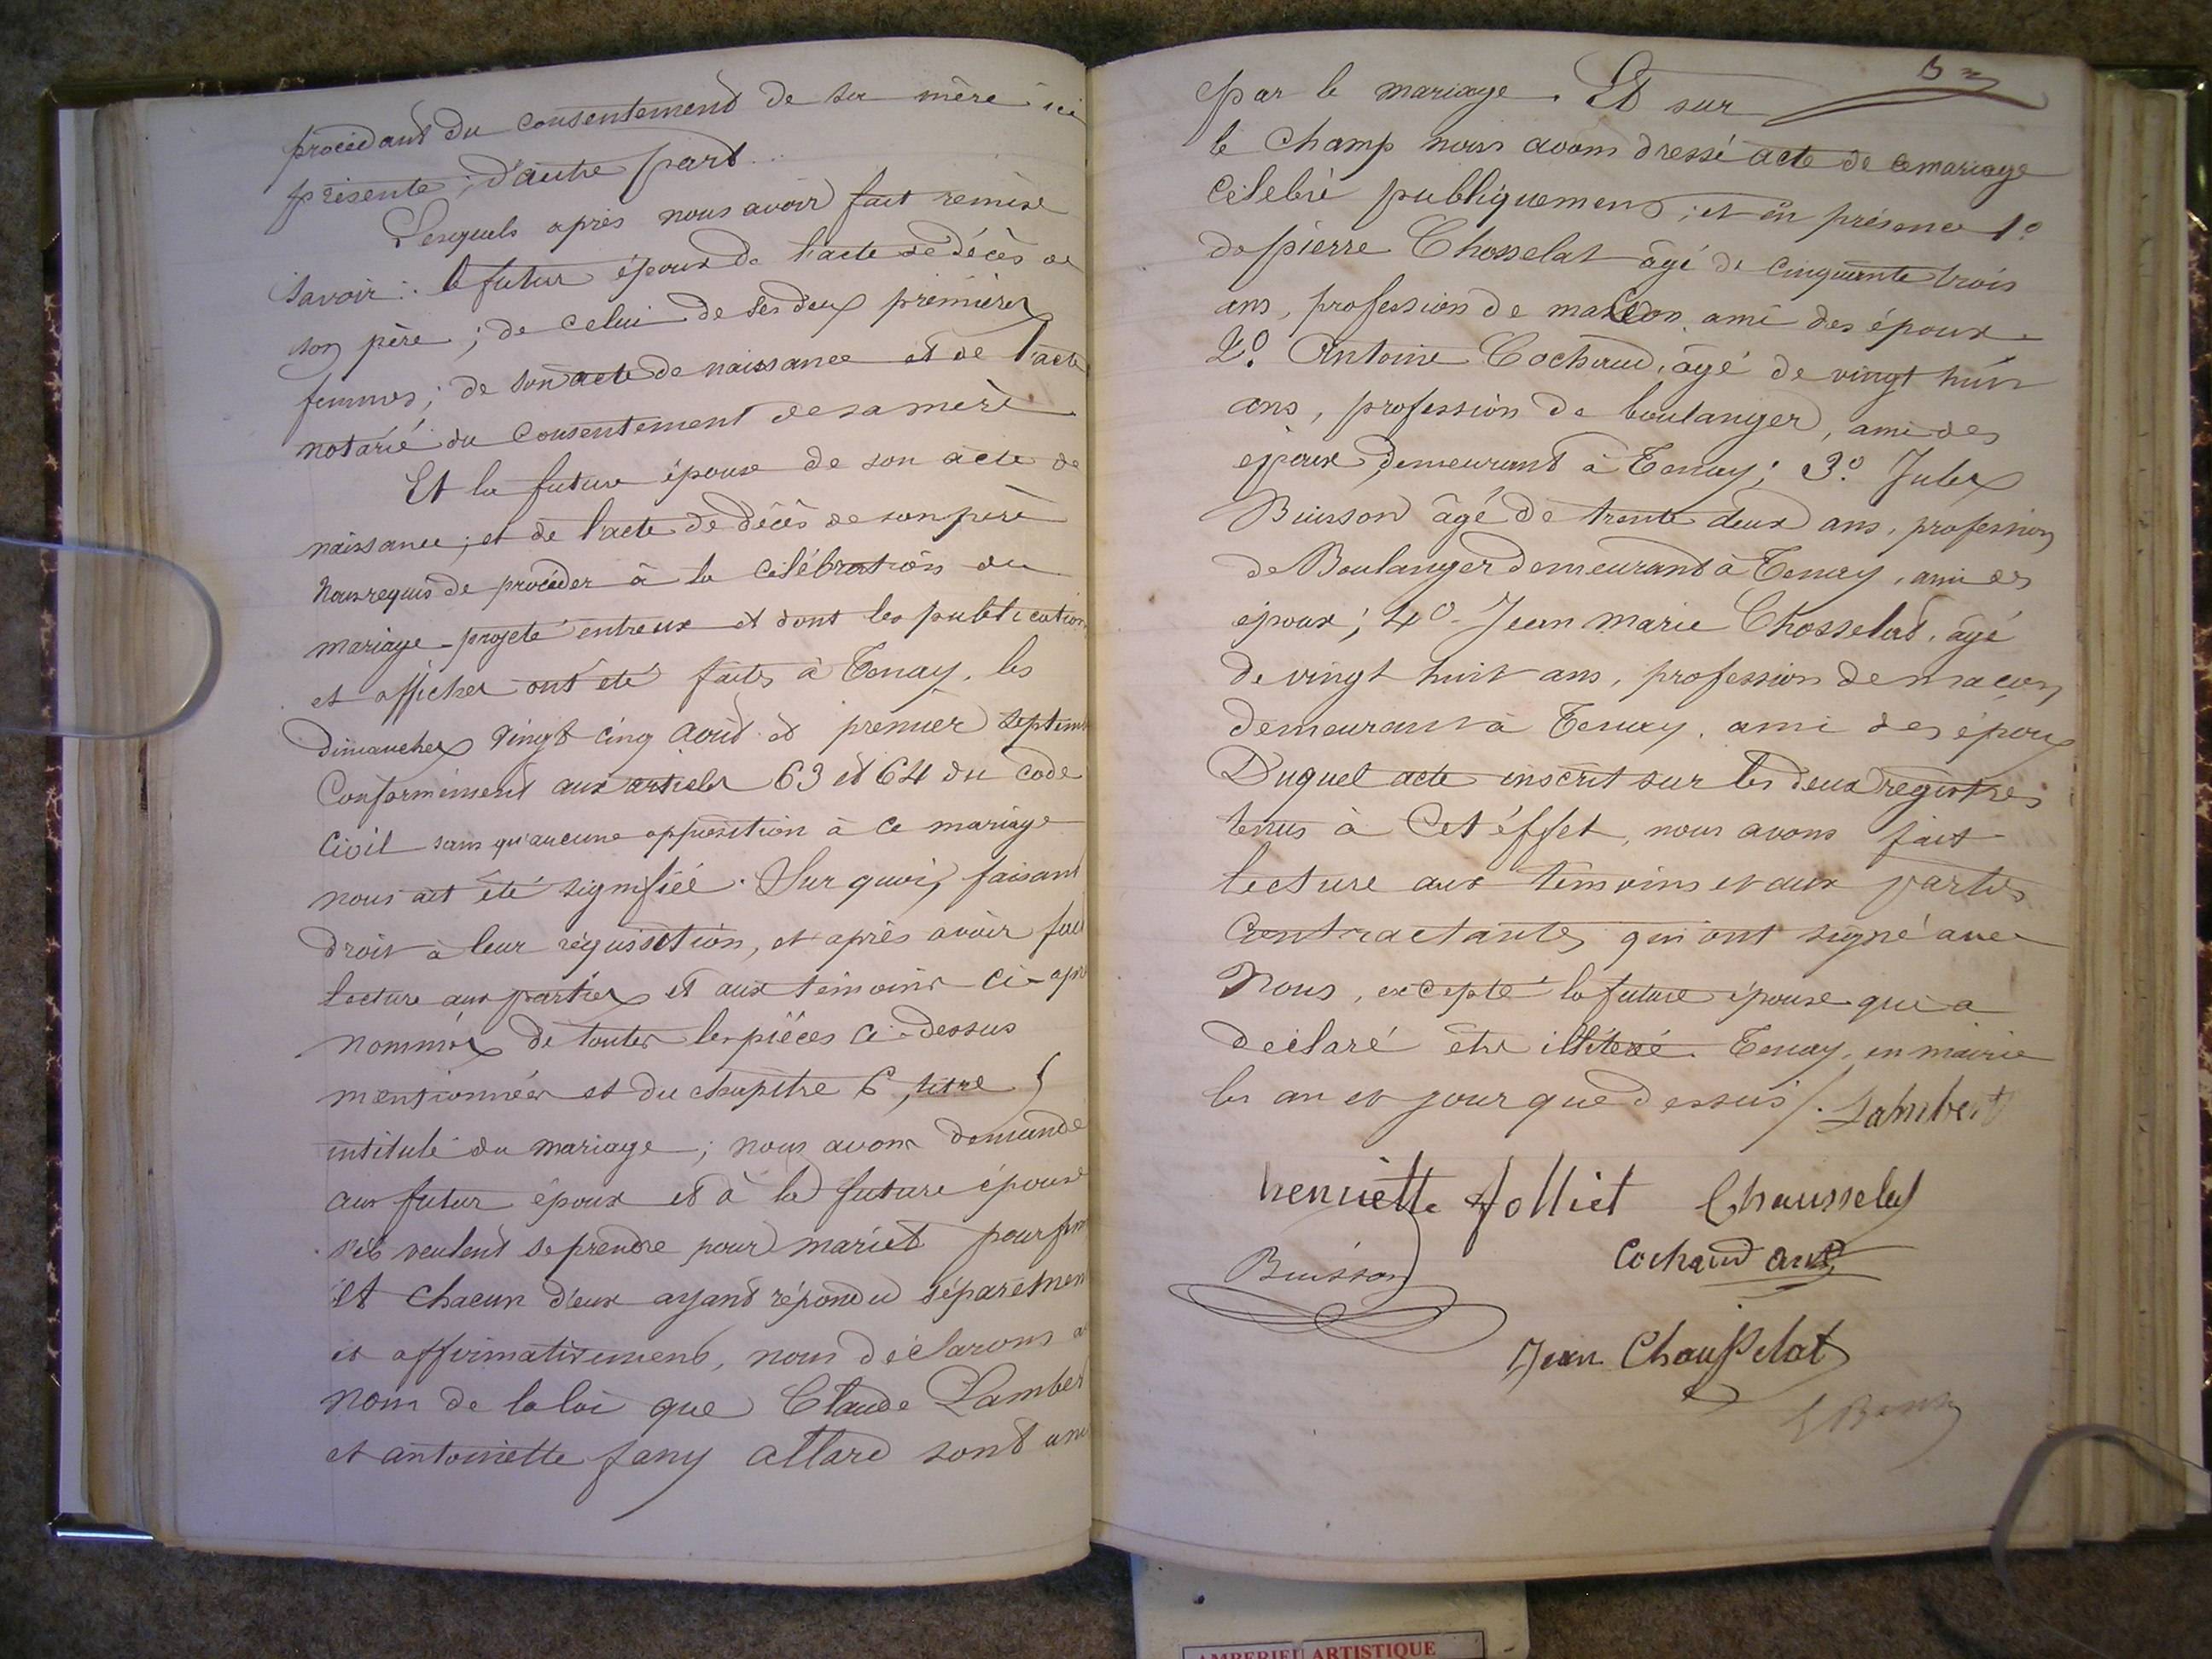 procédant du consentement de sa mère ici
présente ; d'autre part.
Lesquels après nous avoir fait remise
savoir : le futur époux de l'acte de décès de
son père ; de celui de ses deux premières
femmes ; de son acte de naissance et de l'acte
notarié du consentement de sa mère
Et la future épouse de son acte de
naissance ; et de l'acte de décès de son père
Nous requis de procéder à la célébration du
mariage projeté entreux et dont les publication
et affiches ont été faites à Tenay, les
dimanches vingt cinq août et premier septem
Conformément aux articles 63 et 64 du code
Civil sans qu'aucune opposition à ce mariage
nous ait été signifiée. Sur quoi, faisant
droit à leur réquisition, et après avoir fai
lecture aux parties et aux témoins ci-apr
nommés de toutes les pièces ci-dessus
mentionnées et du chapitre 6, titre 5
intitulé du mariage ; nous avons demandé
aux futur époux et à la future épouse
s'ils veulent se prendre pour mari et pour fm
Et chacun d'eux ayant répondu séparémen
et affirmativement, nous déclarons a
nom de la loi que Claude Lamber
et antoinette fany allard sont uni
par le mariage. Et sur
le champ nous avons dressé acte de ce mariage
Célébré publiquement ; et en présence 1o
de pierre Chosselat âgé de cinquante trois
ans, profession de maçon, ami des époux
2o. Antoine Cochaud, âgé de vingt huit
ans, profession de boulanger, ami des
époux, demeurant à Tenay ; 3o. Jules
Buisson âgé de trente deux ans, profession
de Boulanger demeurant à Tenay, ami des
époux ; 4o Jean marie Chosselat, âgé
de vingt huit ans, profession de maçon
demeurant à Tenay, ami des époux
Duquel acte inscrit sur les deux registres
tenus à Cet éffet, nous avons fait
lecture aux témoins et aux parties
Contractantes qui ont signé avec
Nous, excepté la future épouse qui a
déclaré être illitéré. Tenay, en mairie
les an et jour que dessus /. Lambert
henriette Jolliet Chausselat
Buisson Cochaud ant
Jean Chausselat
AMBERIEU ARTISTIQUE